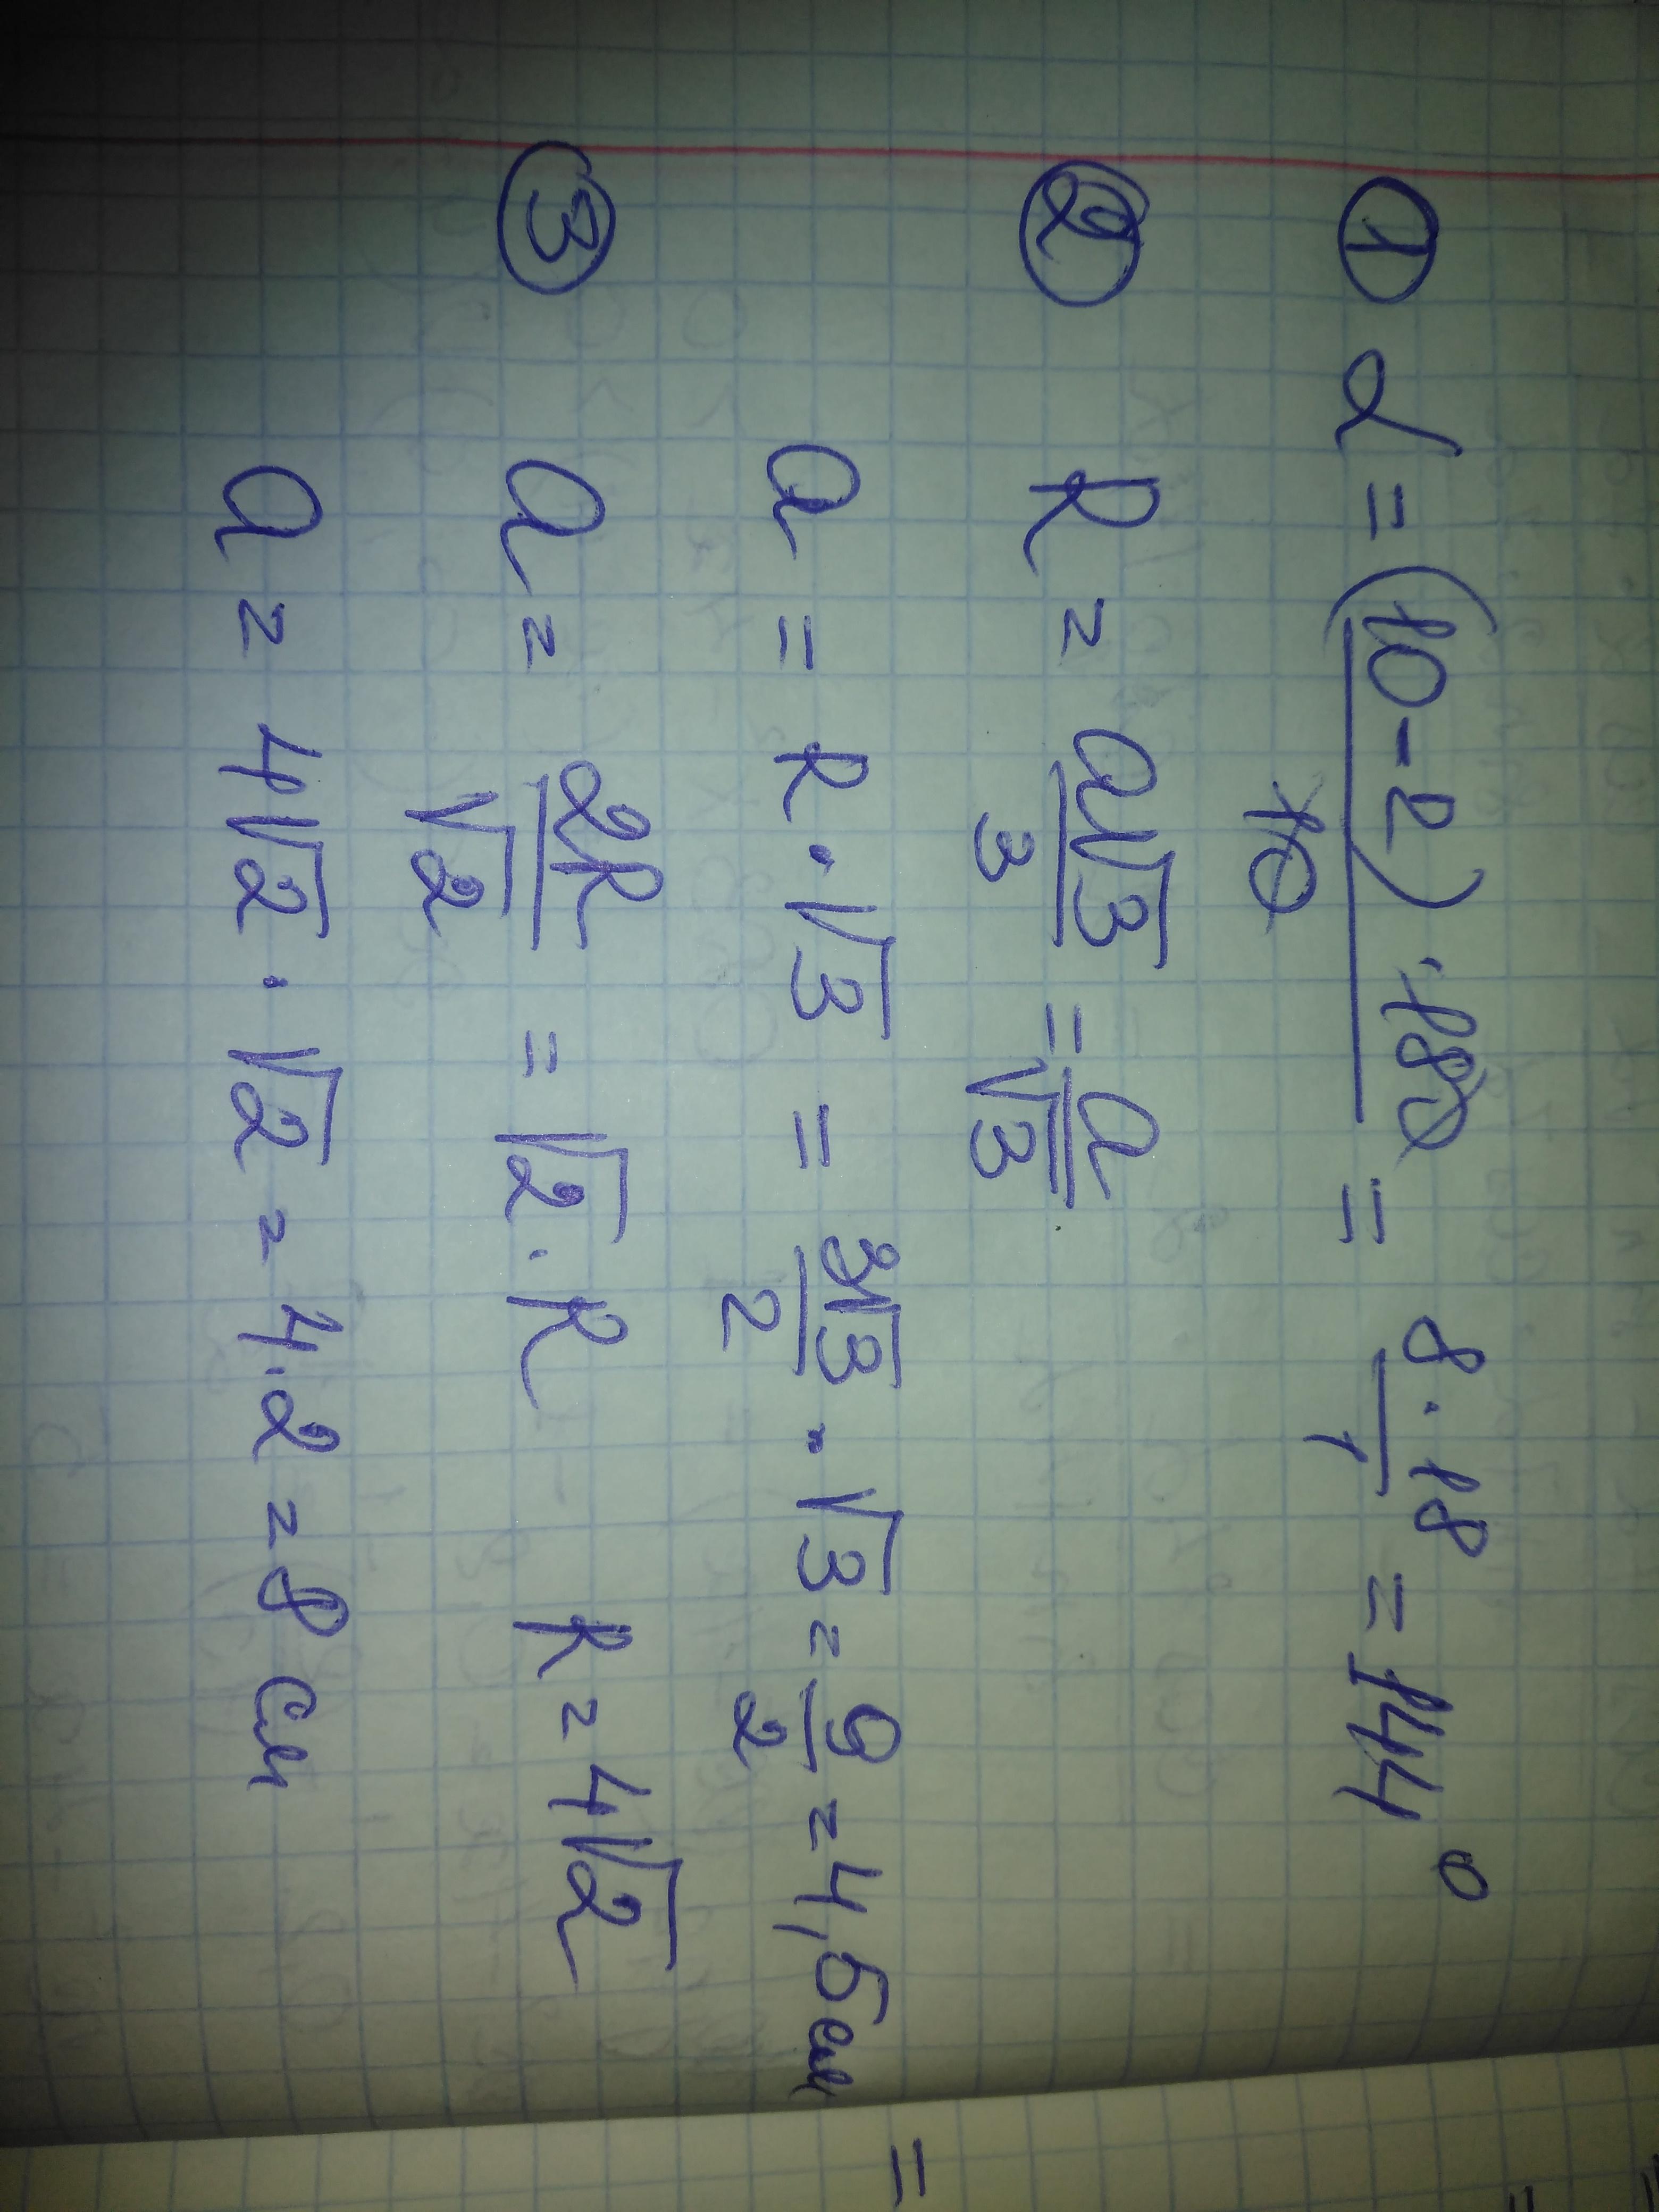 ① α = (10-2)·180/10 = 8·18/1 = 144°
② R = a√3/3 = a/√3
a = R·√3 = 3√3/2 · √3 = 9/2 = 4,5 см
③ a = 2R/√2 = √2·R R = 4√2
a = 4√2·√2 = 4·2 = 8 см
=